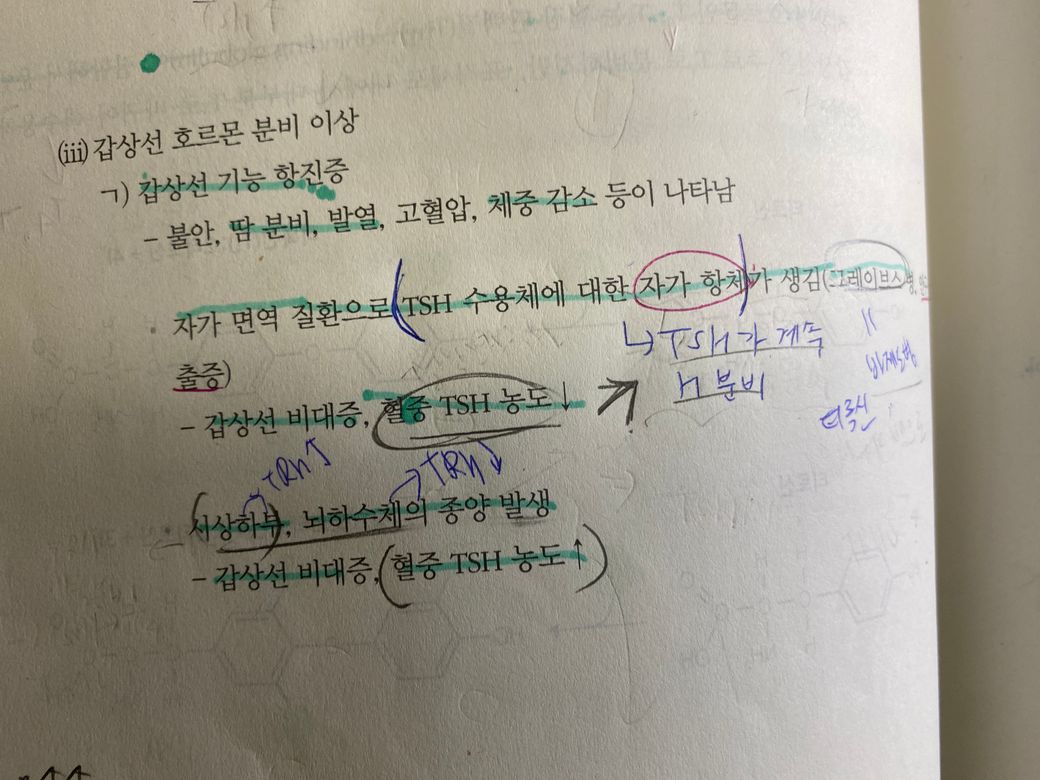 (iii) 갑상선 호르몬 분비 이상
ㄱ) 갑상선 기능 항진증
– 불안, 땀 분비, 발열, 고혈압, 체중 감소 등이 나타남
자가 면역 질환으로 (TSH 수용체에 대한 자가 항체)가 생김(그레이브스병, 안
↳ TSH가 계속
분비
티록신
출증)
– 갑상선 비대증, 혈중 TSH 농도↓
TRH↑
TRH↓
(시상하부), 뇌하수체의 종양 발생
– 갑상선 비대증, (혈중 TSH 농도↑)